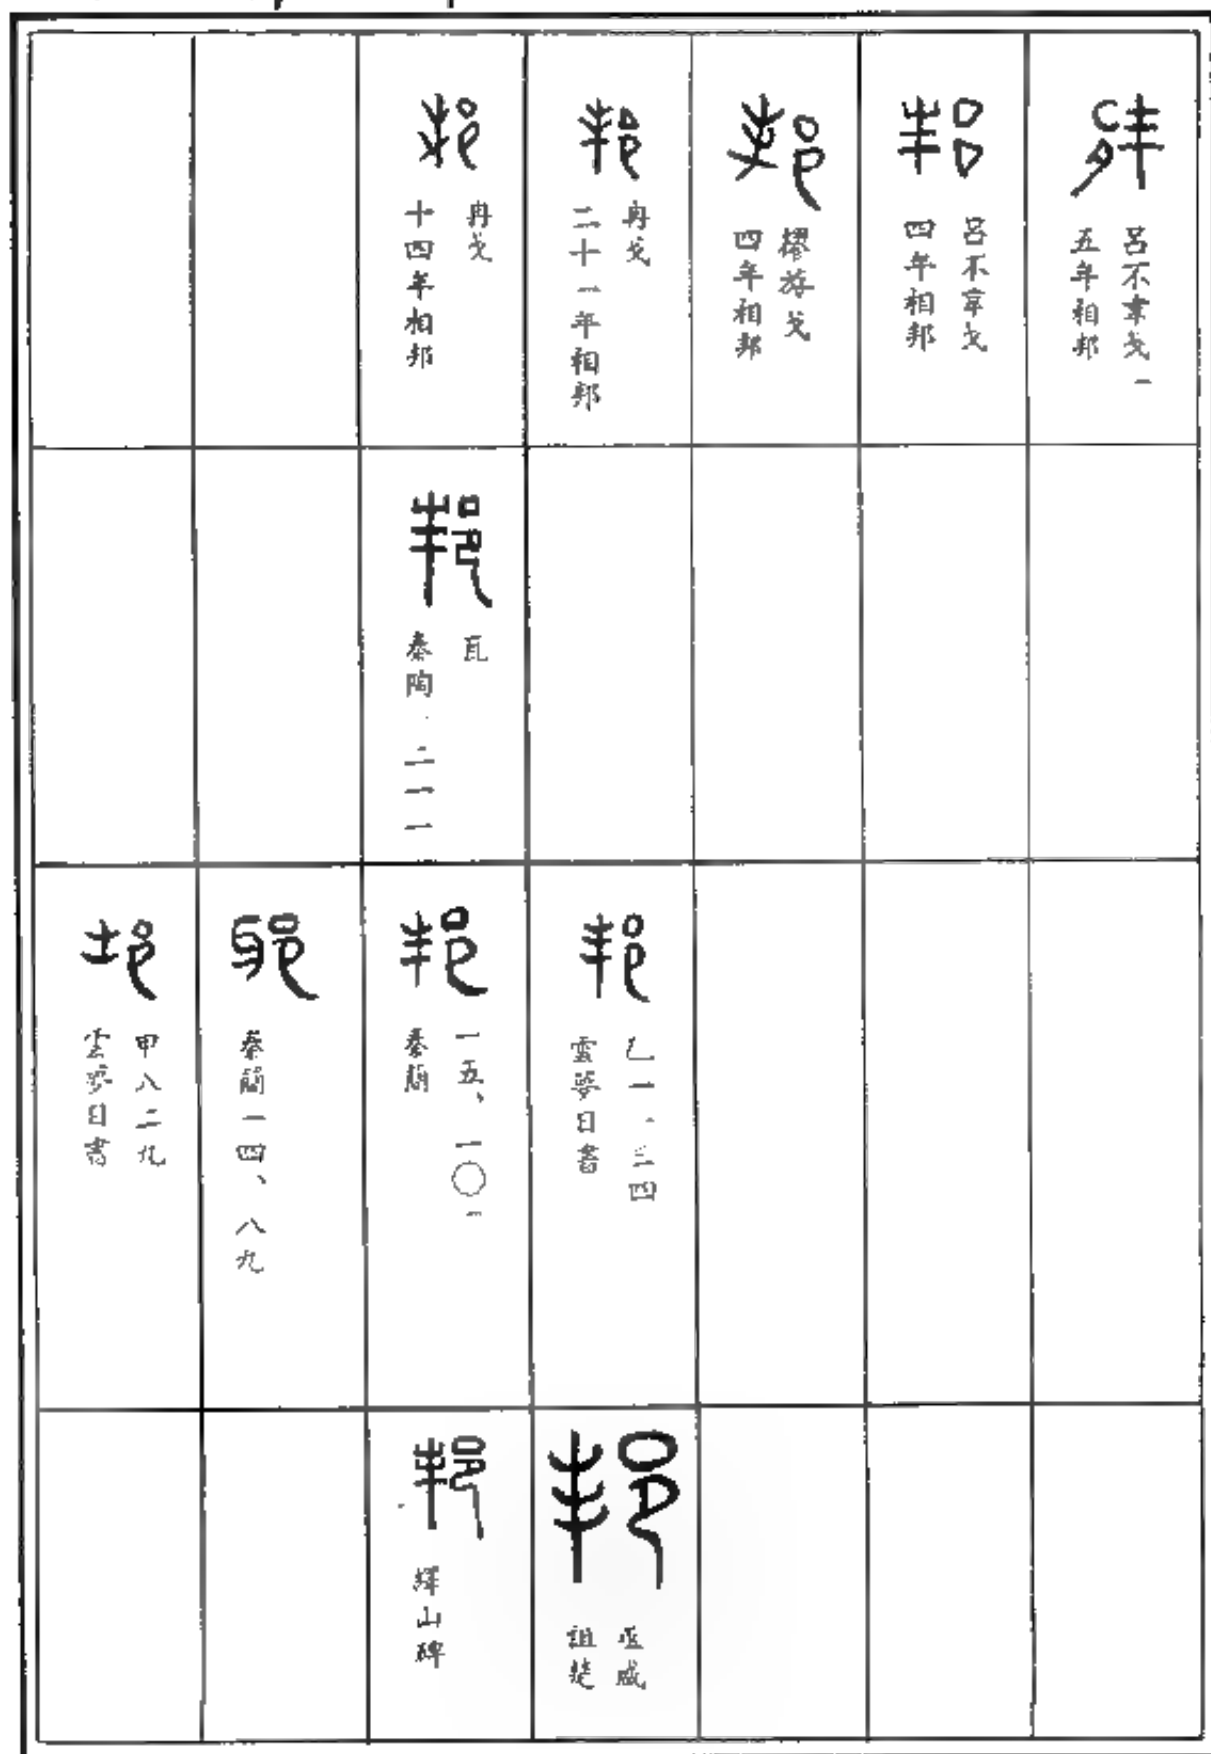 邦
五年相邦
呂不韋戈一
邦
四年相邦
呂不韋戈
邦
四年相邦
樛斿戈
邦
二十一年相邦
冉戈
邦
十四年相邦
冉戈
邦
秦陶·二一一
瓦
邦
雲夢日書
乙一·三四
邦
秦簡
一五、一〇
邦
秦簡一四、八九
邦
雲夢日書
甲八二九
邦
詛楚
巫咸
邦
嶧山碑